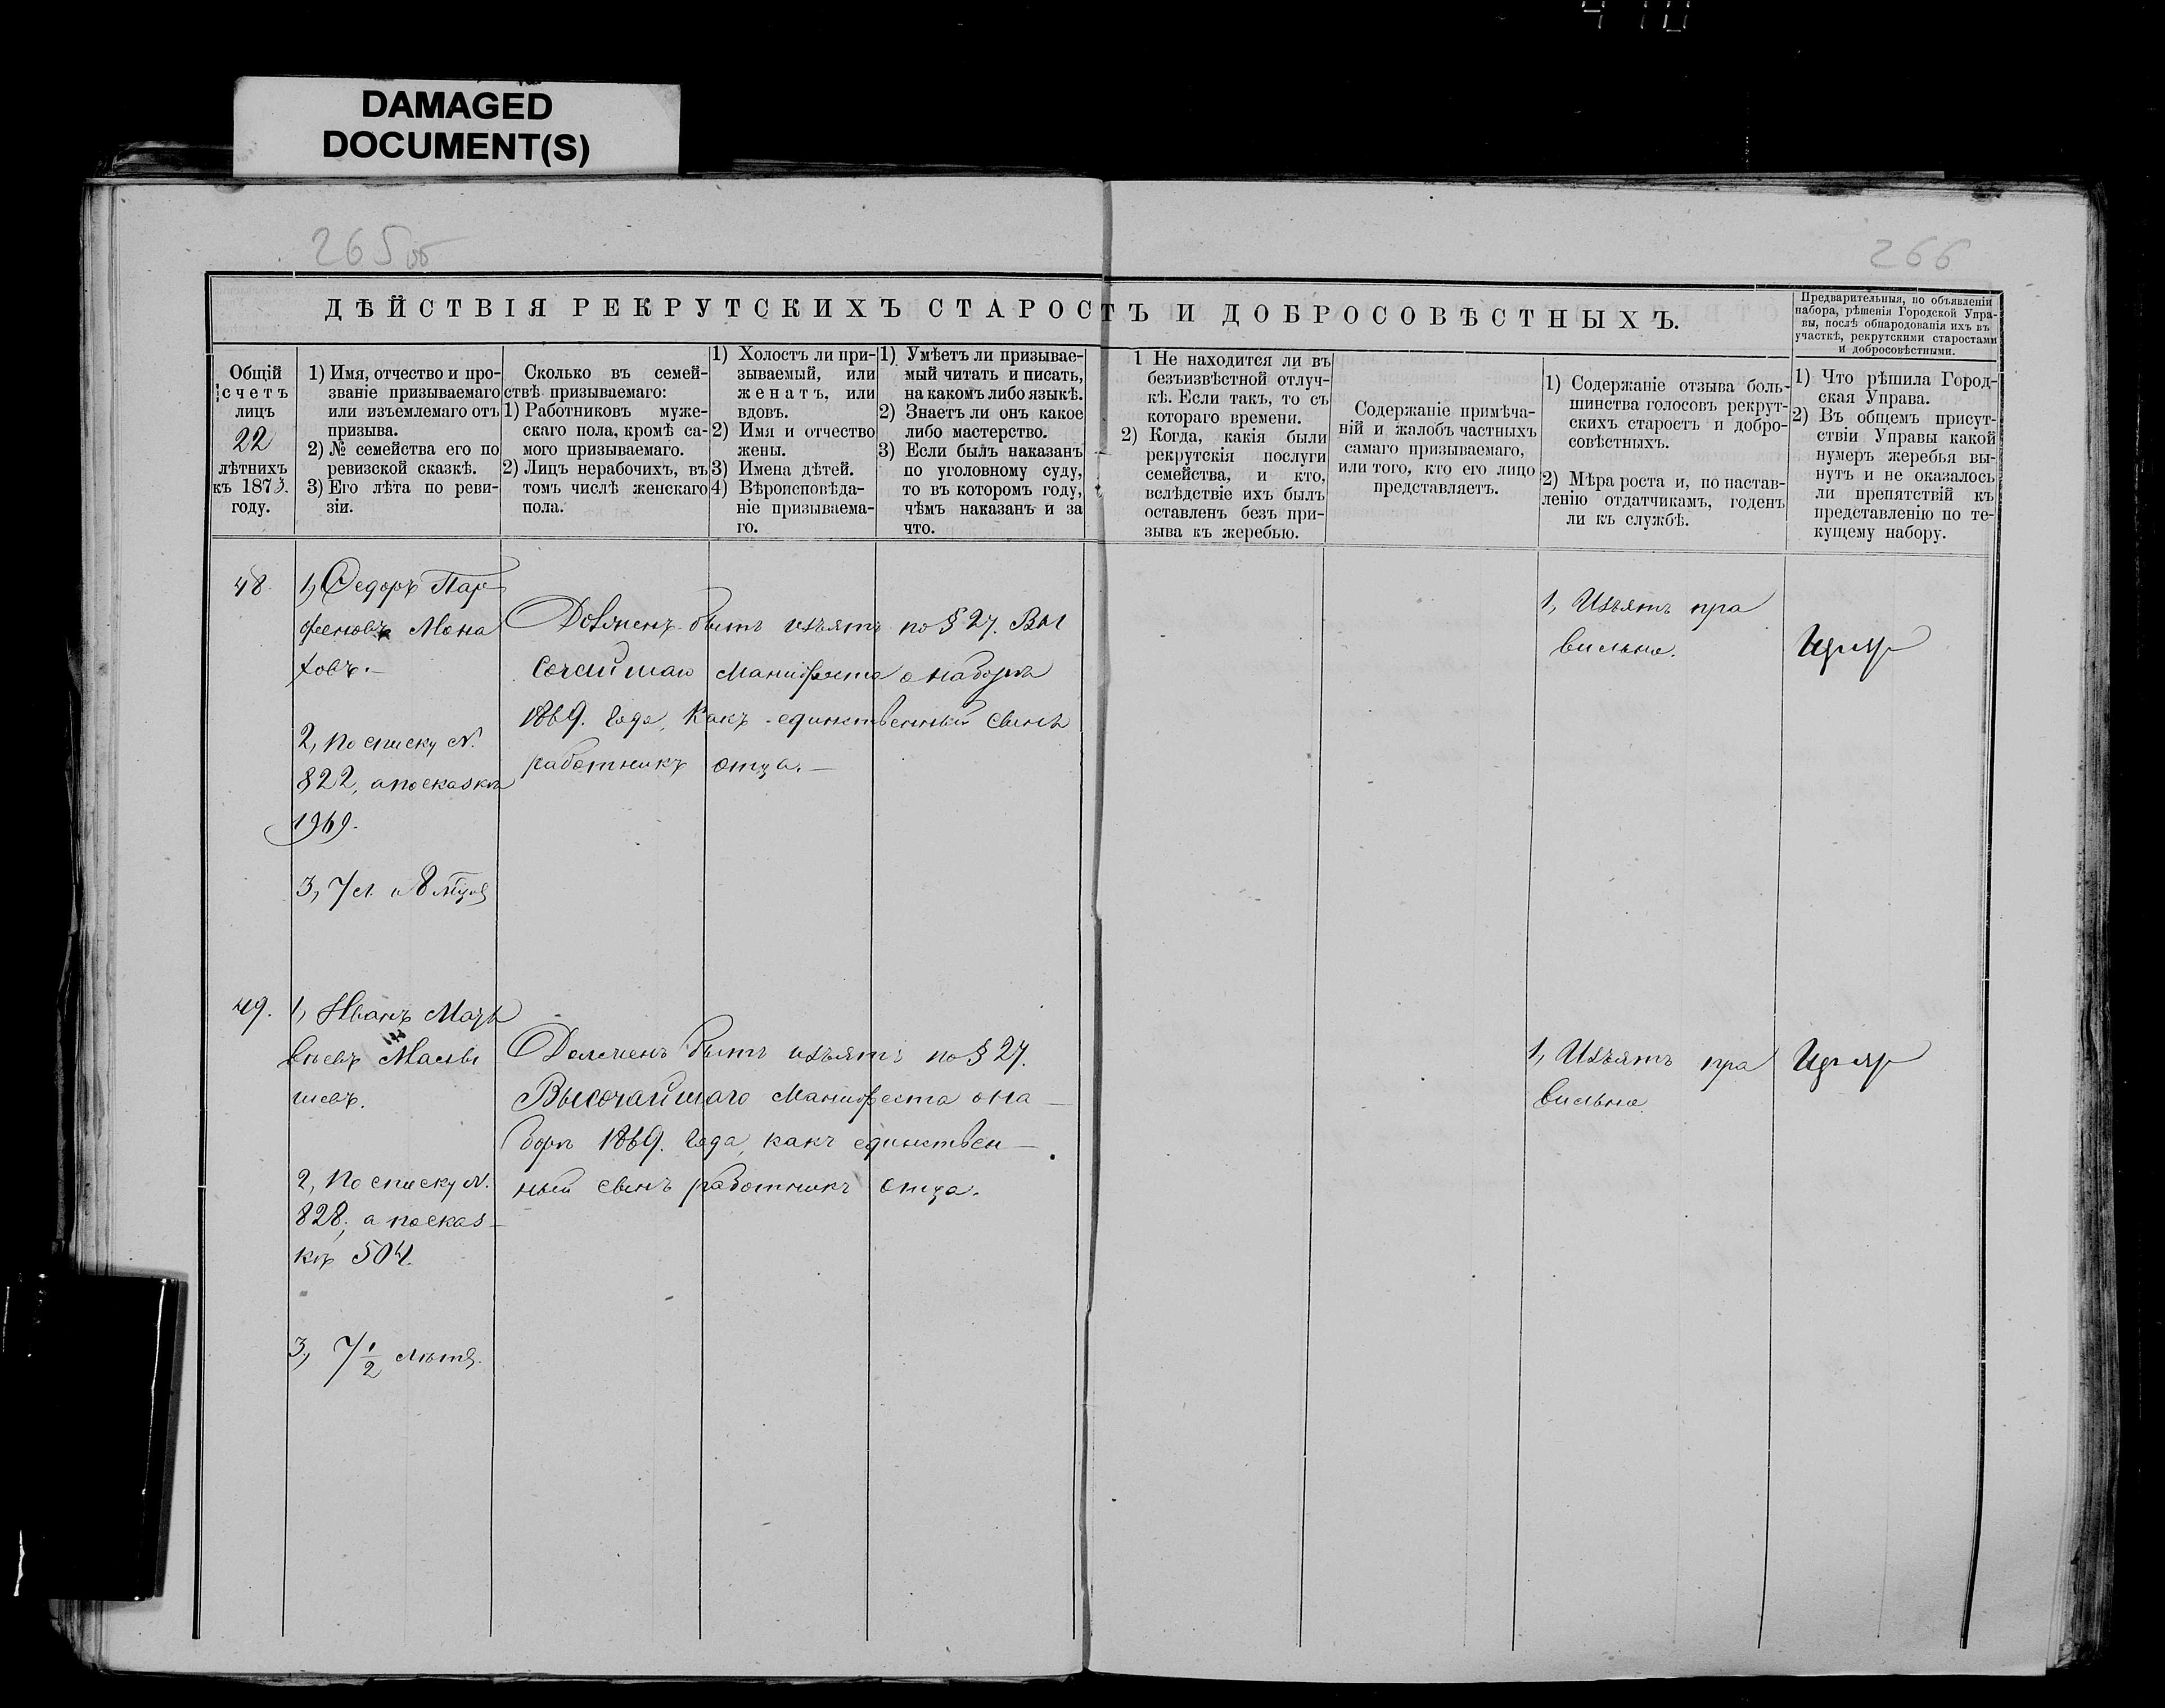 DAMAGED
DOCUMENT(S)
265об
266
ДѢЙСТВІЯ РЕКРУТСКИХЪ СТАРОСТЪ И ДОБРОСОВѢСТНЫХЪ.
Предварительныя, по объявленіи
набора, рѣшенія Городской Упра-
вы, послѣ обнародованія ихъ въ
участкѣ, рекрутскими старостами
и добросовѣстными.
Общій
счетъ
лицъ
22
лѣтнихъ
къ 1873.
году.
1) Имя, отчество и про-
званіе призываемаго
или изъемлемаго отъ
призыва.
2) № семейства его по
ревизской сказкѣ.
3) Его лѣта по реви-
зіи.
Сколько въ семей-
ствѣ призываемаго:
1) Работниковъ муже-
скаго пола, кромѣ са-
мого призываемаго.
2) Лицъ нерабочихъ, въ
томъ числѣ женскаго
пола.
1) Холостъ ли при-
зываемый, или
женатъ, или
вдовъ.
2) Имя и отчество
жены.
3) Имена дѣтей.
4) Вѣроисповѣда-
ніе призываема-
го.
1) Умѣетъ ли призывае-
мый читать и писать,
на какомъ либо языкѣ.
2) Знаетъ ли онъ какое
либо мастерство.
3) Если былъ наказанъ
по уголовному суду,
то въ которомъ году,
чѣмъ наказанъ и за
что.
1 Не находится ли въ
безъизвѣстной отлуч-
кѣ. Если такъ, то съ
котораго времени.
2) Когда, какія были
рекрутскія послуги
семейства, и кто,
вслѣдствіе ихъ былъ
оставленъ безъ при-
зыва къ жеребью.
Содержаніе примѣча-
ній и жалобъ частныхъ
самаго призываемаго,
или того, кто его лицо
представляетъ.
1) Содержаніе отзыва боль-
шинства голосовъ рекрут-
скихъ старостъ и добро-
совѣстныхъ.
2) Мѣра роста и, по настав-
ленію отдатчикамъ, годенъ
ли къ службѣ.
1) Что рѣшила Город-
ская Управа.
2) Въ общемъ присут-
ствіи Управы какой
нумеръ жеребья вы-
нутъ и не оказалось
ли препятствій къ
представленію по те-
кущему набору.
48.
1, Федоръ Пар-
феновъ Мона
ховъ.—
2, По списку N.
822, а по сказкѣ
1969.
3, 7 л. и 8 мѣся
Долженъ быть изъятъ по § 27. Вы
сочайшаго Манифеста о наборѣ
1869. года, какъ единственный сынъ
работникъ отца.—
1, Изъятъ пра
вильно.
49.
1, Иванъ Мат
вѣевъ
шевъ.
2, По списку N.
828, а по сказ-
кѣ 504.
3, 7 1/2 лѣтъ.
Долженъ быть изъятъ по § 27.
Высочайшаго Манифеста о на-
борѣ 1869. года, какъ единствен-
ный сынъ работникъ отца.
1, Изъятъ пра
вильно.